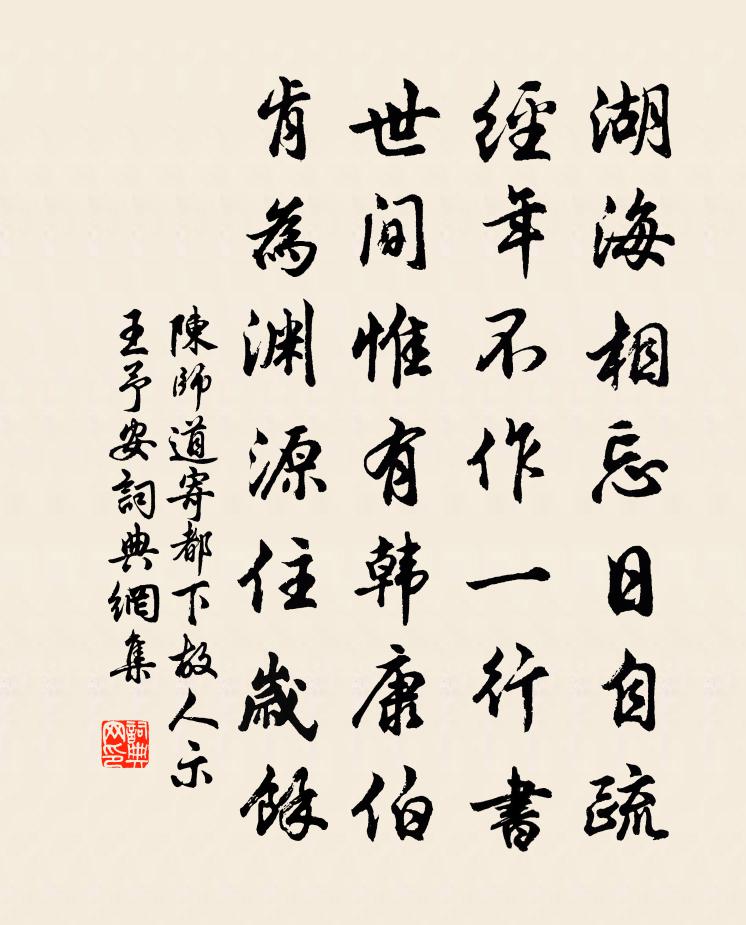 湖海相忘日自疏
經年不作一行書
世間惟有韩康伯
肯為渊源住歲餘
陳師道寄都下故人示
王予安詞典網集
詞典网印